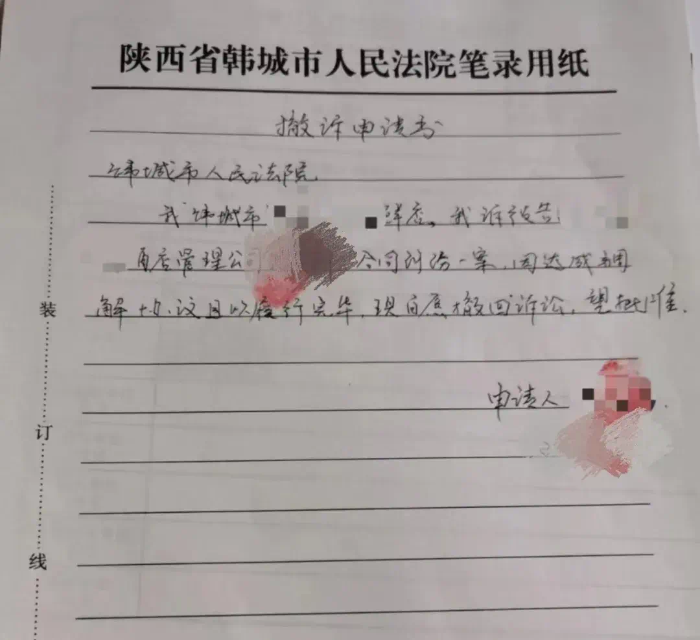 陕西省韩城市人民法院笔录用纸
撤诉申请书
韩城市人民法院
我韩城市 鲜店。我诉被告
酒店管理公司 合同纠纷一案，因达成调
解协议且以履行完毕，现自愿撤回诉讼，望批准.
申请人
装
订
线